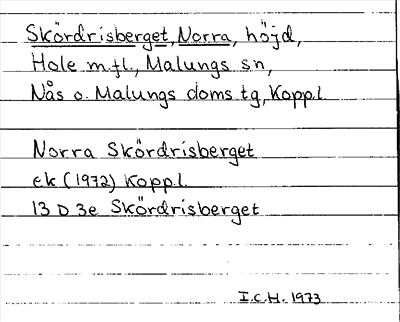 Skördrisberget, Norra, höjd,
Hole m.fl., Malungs sn,
Nås o. Malungs doms tg, Kopp.l.
Norra Skördrisberget
ek (1972) Kopp.l.
13 D 3e Skördrisberget
I.C.H. 1973